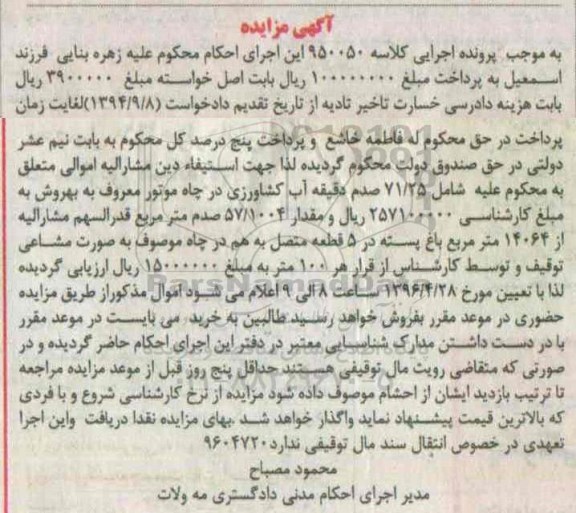 آگهی مزایده
به موجب پرونده اجرایی کلاسه ۹۵۰۰۵۰ این اجرای احکام محکوم علیه زهره بنایی فرزند
اسمعیل به پرداخت مبلغ ۱۰۰۰۰۰۰۰۰۰ ریال بابت اصل خواسته مبلغ ۳۹۰۰۰۰۰ ریال
بابت هزینه دادرسی خسارت تاخیر تادیه از تاریخ تقدیم دادخواست (۱۳۹۴/۹/۸) لغایت زمان
پرداخت در حق محکوم له فاطمه خاشع و پرداخت پنج درصد کل محکوم به بابت نیم عشر
دولتی در حق صندوق دولت محکوم گردیده لذا جهت استیفاء دین مشارالیه اموالی متعلق
به محکوم علیه شامل ۷۱/۲۵ صدم دقیقه آب کشاورزی در چاه موتور معروف به بهروش به
مبلغ کارشناسی ۲۵۷۱۰۰۰۰۰ ریال و مقدار ۵۷/۱۰۰۴ صدم متر مربع قدرالسهم مشارالیه
از ۱۴۰۶۴ متر مربع باغ پسته در ۵ قطعه متصل به هم در چاه موصوف به صورت مشاعی
توقیف و توسط کارشناس از قرار هر ۱۰۰ متر به مبلغ ۱۵۰۰۰۰۰۰ ریال ارزیابی گردیده
لذا با تعیین مورخ ۱۳۹۶/۴/۲۸ ساعت ۸ الی ۹ اعلام می شود اموال مذکور از طریق مزایده
حضوری در موعد مقرر بفروش خواهد رسید طالبین به خرید می بایست در موعد مقرر
با در دست داشتن مدارک شناسایی معتبر در دفتر این اجرای احکام حاضر گردیده و در
صورتی که متقاضی رویت مال توقیفی هستند حداقل پنج روز قبل از موعد مزایده مراجعه
تا ترتیب بازدید ایشان از احشام موصوف داده شود مزایده از نرخ کارشناسی شروع و با فردی
که بالاترین قیمت پیشنهاد نماید واگذار خواهد شد .بهای مزایده نقدا دریافت واین اجرا
تعهدی در خصوص انتقال سند مال توقیفی ندارد ۹۶۰۴۷۲۰
محمود مصباح
مدیر اجرای احکام مدنی دادگستری مه ولات